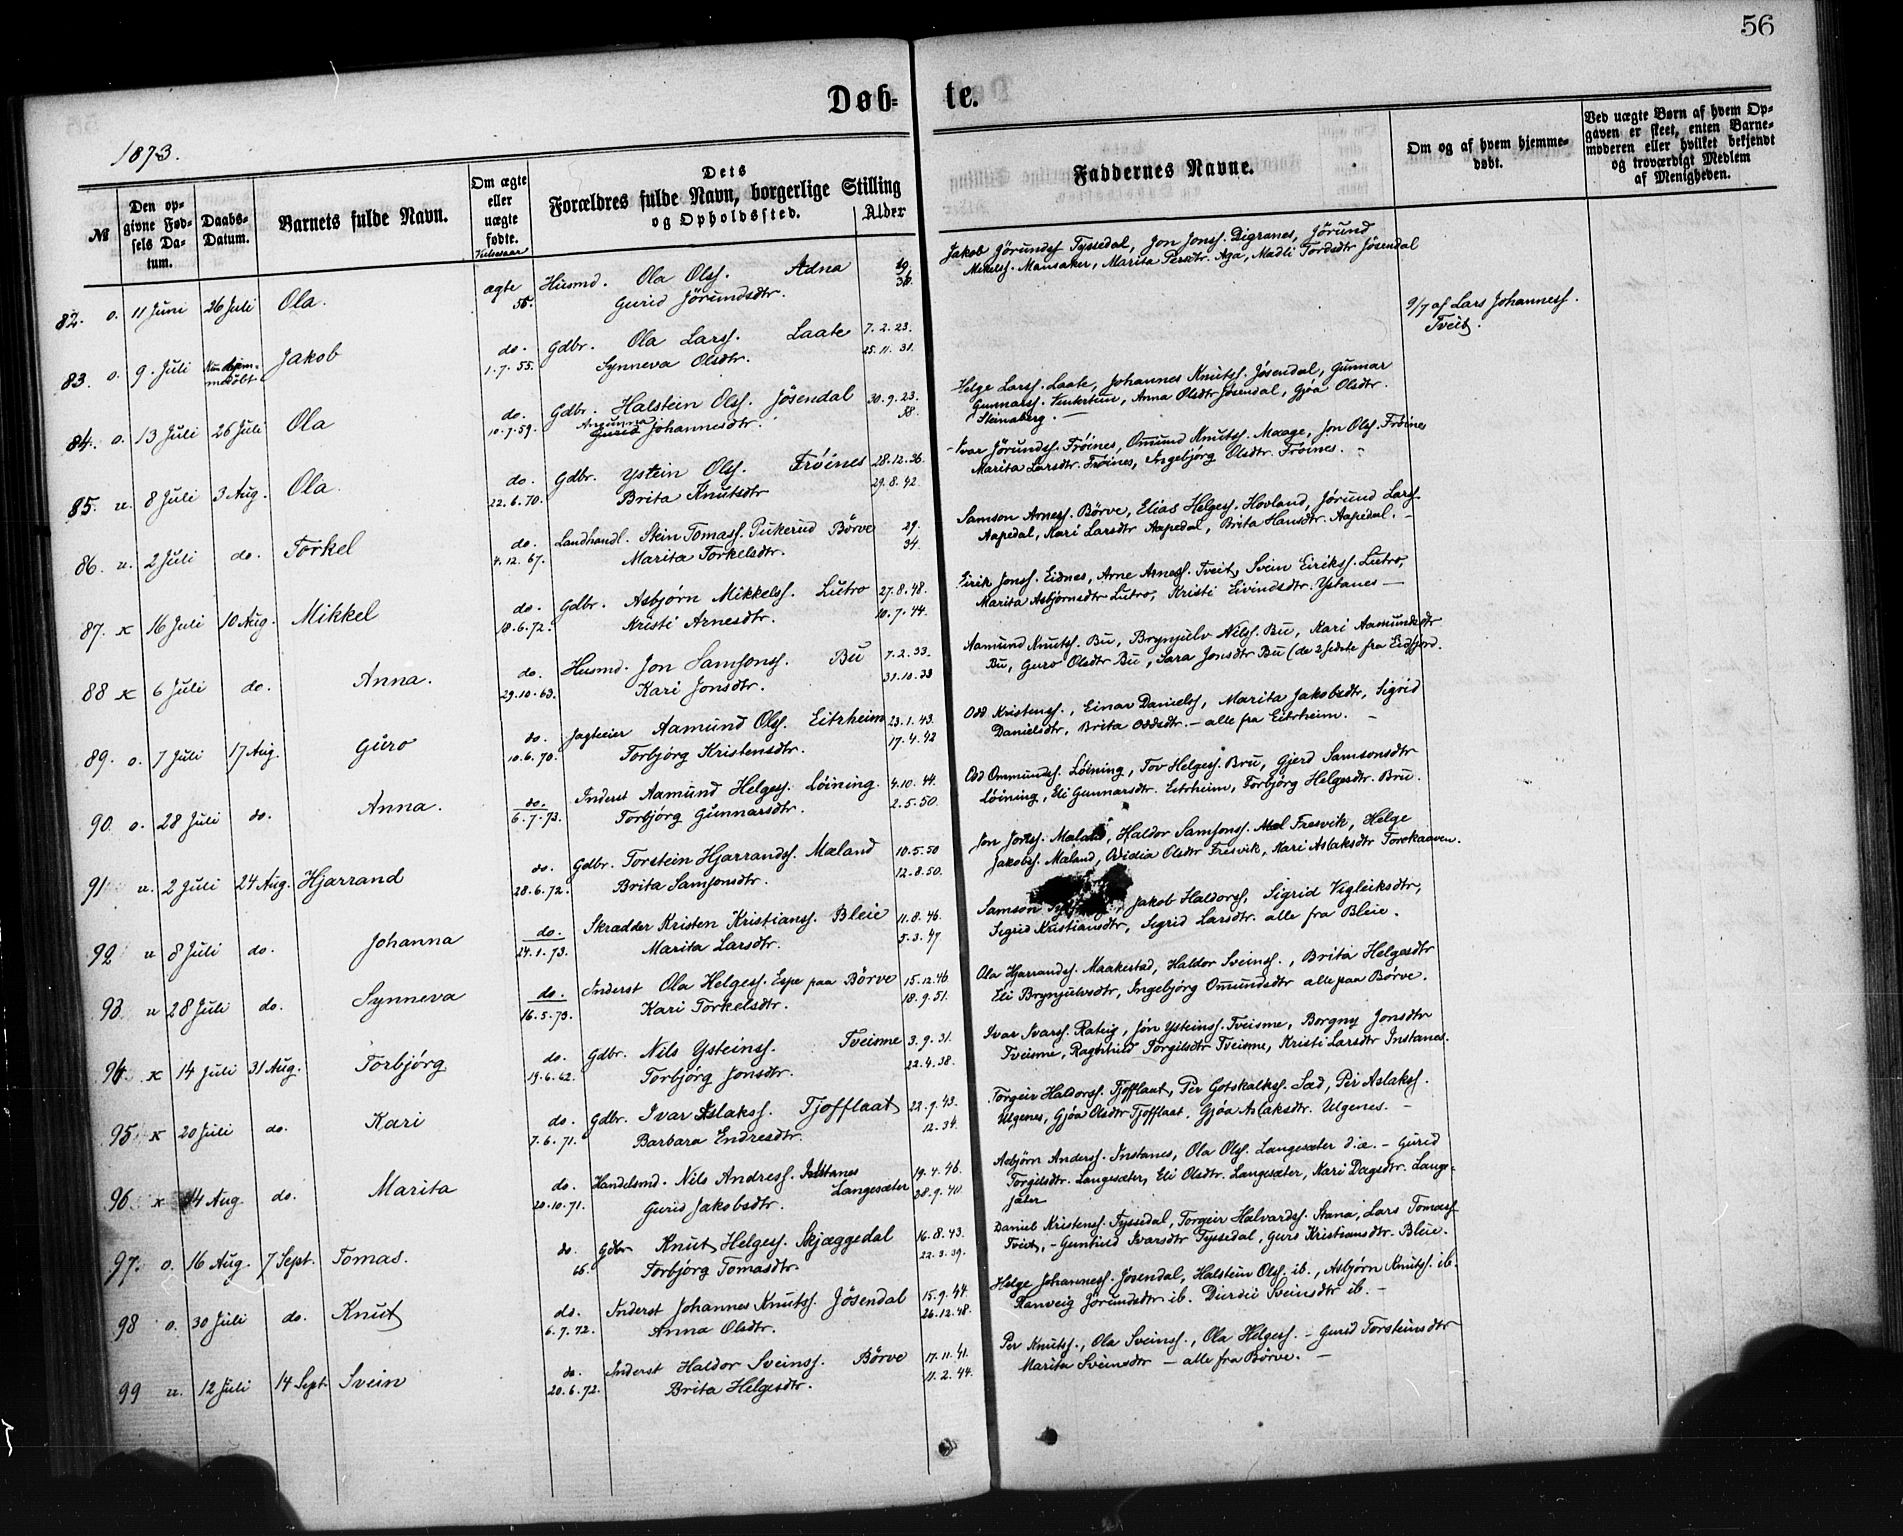 56
Døb= te.
1873.
№
Den op=
givne Fød=
sels Da=
tum.
Daabs=
Datum.
Barnets fulde Navn.
Om ægte
eller
uægte
fødte.
Vielsesaar
Dets
Forældres fulde Navn, borgerlige Stilling
og Opholdssted.
Alder
Faddernes Navne.
Om og af hvem hjemme=
døbt.
Ved uægte Børn af hvem Op=
gaven er skeet, enten Barne=
moderen eller hvilket bekjendt
og troværdigt Medlem
af Menigheden.
82. o. 11 Juni 26 Juli Ola. ægte Husmd. Ola Olss. Adna
Gurid Jörundsdtr. 36.
Jakob Jörundss Tyssedal, Jon Jonss. Digranes, Jörund
Mikelss. Mansaker, Marita Persdtr. Aga, Madli Tordsdtr Jösendal
83. o. 9. Juli Jakob do. Gdbr. Ola Larss. Laate 7.2.23.
1.7.55. Synneva Olsdtr. 25.11.31.
9/7 af Lars Johanness.
Tveit.
84. o. 13 Juli 26 Juli Ola do. Gdbr. Halstein Olss. Jösendal 30.9.23.
10.7.59. Johannesdtr. 38.
Helge Larss. Laate, Johannes Knutss. Jösendal, Gunnar
Gunnarss. Vintertun, Anna Olsdtr Jösendal, Gjøa Olsdtr.
Steinaberg. —
85. u. 8 Juli 3 Aug. Ola do. Gdbr. Ystein Olss. Fröines 28.12.36.
22.6.70. Brita Knutsdtr 29.8.42.
Ivar Jörundss. Fröines, Omund Knutss. Maage, Jon Olss. Fröines
Marita Larsdtr. Fröines, Ingebjörg Olsdtr. Fröines.
86. u. 2 Juli do. Torkel do. Landhandl. Stein Tomass. Börve 29.
4.12.67. Marita Torkelsdtr. 34.
Samson Arness. Börve, Elias Helgess. Hovland, Jörund Larss.
Aapedal, Kari Larsdtr Aapedal, Brita Hansdtr. Aapedal. —
87. x 16 Juli 10 Aug. Mikkel do. Gdbr. Asbjørn Mikkelss. Lutro 27.8.48.
18.6.72. Kristi Arnesdtr. 10.7.44.
Eirik Jonss. Eidnes, Arne Arness. Tveit, Svein Eirikss. Lutro,
Marita Asbjørnsdtr Lutro, Kristi Eivindsdtr. Ystanes —
88 x 6 Juli do. Anna. do. Husmd. Jon Samsonss. Bu 7.2.33.
29.10.63. Kari Jonsdtr. 31.10.33
Aamund Knutss. Bu, Brynjulv Nilss. Bu, Kari Aamundsdtr
Bu, Guro Olsdtr Bu, Sara Jonsdtr Bu (de 2 sidste fra Eidfjord.
89. o. 7 Juli 17 Aug. Guro do. Jagteeier Aamund Olss. Eitrheim 23.1.43.
10.6.70. Torbjörg Kristensdtr. 17.4.42
Odd Kristenss., Einar Danielss, Marita Jakobsdtr, Sigrid
Danielsdtr, Brita Oddsdtr. — alle fra Eitrheim. —
90. o. 28 Juli do. Anna. do. Inderst Aamund Helgess. Löining. 4.10.44.
6.7.73. Torbjörg Gunnarsdtr. 2.5.50.
Odd Ommundss. Löining, Tov Helgess. Bru, Gjerd Samsonsdtr
Löining, Eli Gunnarsdtr. Eitrheim, Torbjörg Helgesdtr. Bru.
91 u. 2 Juli 24 Aug. Hjarrand do. Gdbr. Torstein Hjarrandss. Mæland 10.5.50
28.6.72. Brita Samsonsdtr. 12.8.50.
Jon Jonss. Mæland, Haldor Samsonss. Fresvik, Helge
Jakobss. Mæland, Ovidia Olsdtr Fresvik, Kari Aslaksdtr Torekaaven.
92 u 8 Juli do. Johanna do. Skrædder Kristen Kristianss. Bleie 11.8.46.
24.1.73. Marita Larsdtr. 5.3.47.
Samson Jakob Haldorss, Sigrid Vigleiksdtr,
Sigrid Kristiansdtr, Sigrid Larsdtr. alle fra Bleie.
93 u 28 Juli do. Synneva do. Inderst Ola Helgess. Espe paa Börve 15.12.46.
16.5.73. Kari Torkelsdtr. 18.9.51.
Ola Hjarrandss. Maakestad, Haldor Sveinss., Brita Helgesdtr
Eli Brynjulvsdtr, Ingebjörg Omundsdtr alle paa Börve.
94. x 14 Juli 31 Aug. Torbjörg do. Gdbr. Nils Ysteinss. Tveisme 3.9.31.
19.6.62. Torbjörg Jonsdtr. 22.4.38.
Ivar Ivarss. Rateig, Jon Ysteinss. Tveisme, Borgny Jonsdtr
Tveisme, Ragnhild Torgilsdtr Tveisme, Kristi Larsdtr Instanes.
95. x 20 Juli do. Kari do. Gdbr. Ivar Aslakss. Tjofflaat 22.9.43.
7.6.71. Barbara Endresdtr. 12.34.
Torgeir Haldorss. Tjofflaat, Per Gotskalkss. Sæd, Per Aslakss.
Ulgenes, Gjøa Olsdtr Tjofflaat, Gjøa Aslaksdtr. Ulgenes. —
96 x 4 Aug. do. Marita do. Handelsmd. Nils Andress. Instanes 19.4.46.
Langesæter
20.10.71. Gurid Jakobsdtr. 28.9.40.
Asbjörn Anderss. Instanes, Ola Olss. Langesæter d.æ. — Gurid
Torgilsdtr. Langesæter, Eli Olsdtr. Langesæter, Kari Dagsdtr. Lange=
sæter
97. o. 16 Aug. 7 Sept. Tomas. do. Gdbr Knut Helgess. Skjæggedal 16.8.43.
Torbjörg Tomasdtr. 22.3.39.
Daniel Kristenss. Tyssedal, Torgeir Halvardss. Stana, Lars Tomass
Tveit, — Gunhild Ivarsdtr Tyssedal, Guro Kristiansdtr. Bleie.
98 o. 30 Juli do. Knut do. Inderst Johannes Knutss. Jösendal 15.9.44.
6.7.72. Anna Olsdtr. 26.12.48.
Helge Johanness. Jösendal, Halstein Olss. ib., Asbjørn Knutss. ib.
Ranveig Jörundsdtr ib. Durdei Sveinsdtr ib. —
99 u. 12 Juli 14 Sept. Svein do. Inderst Haldor Sveinss. Börve 17.11.41.
20.6.72. Brita Helgesdtr. 11.2.44.
Per Knutss., Ola Sveinss., Ola Helgess. — Gurid Torsteinsdtr
Marita Sveinsdtr — alle fra Börve. —